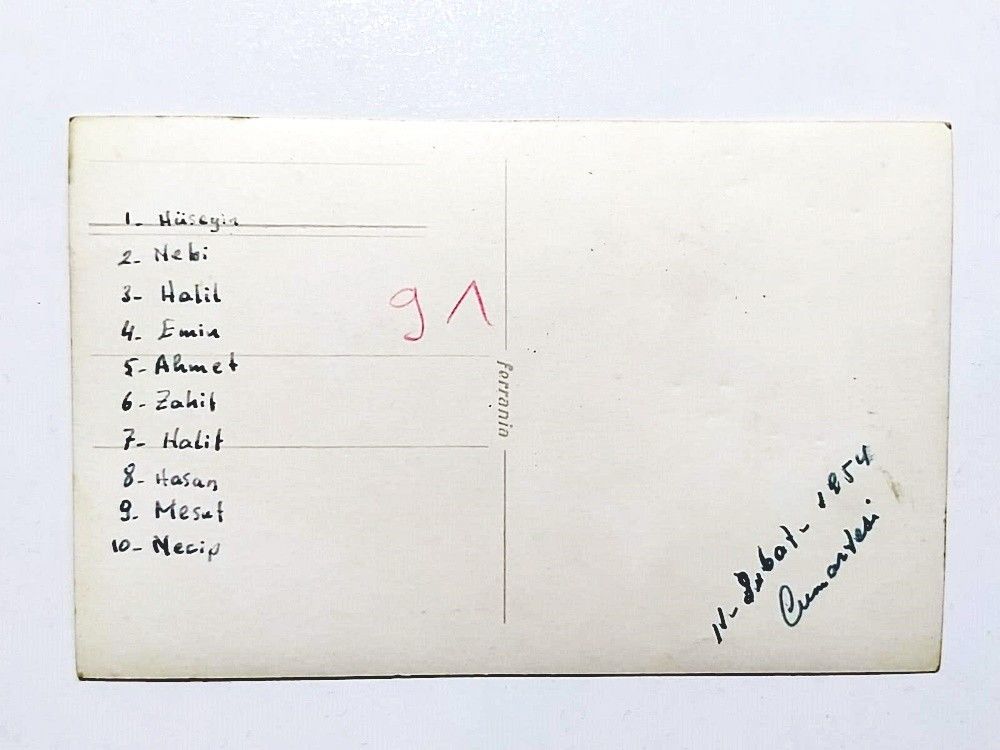 1- Hüseyin
2- Nebi
3- Halil
4- Emin
5- Ahmet
6- Zahit
7- Halit
8- Hasan
9- Mesut
10- Necip
91
ferrania
Şubat- 1954
Cumartesi